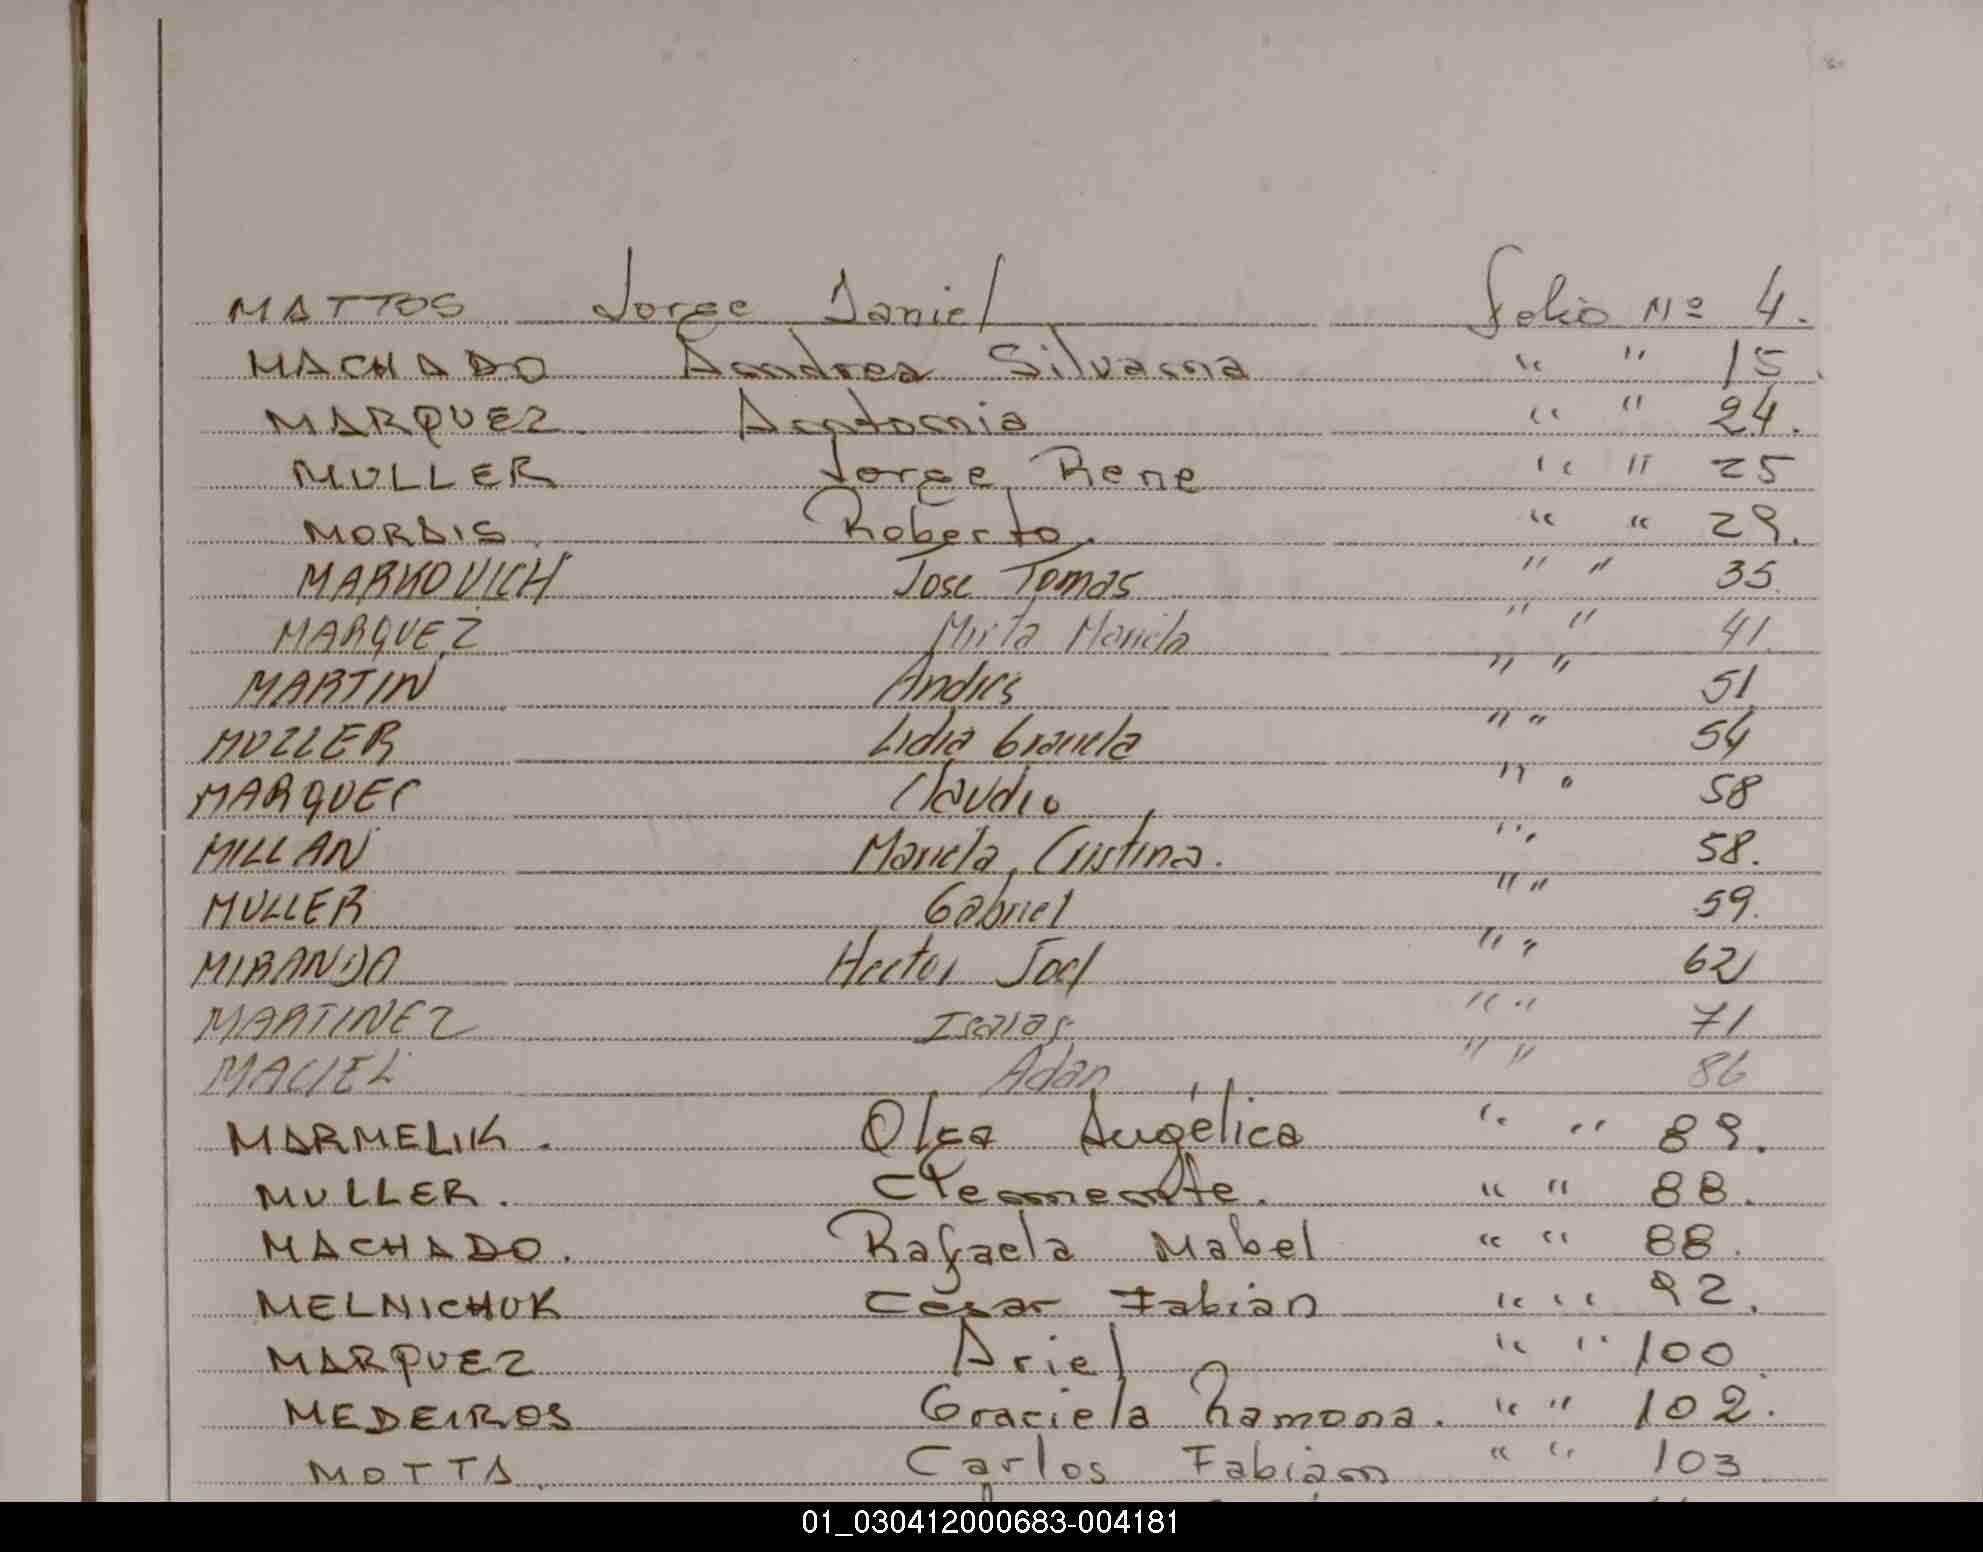 MATTOS Jorge Daniel Folio Nº 4.
MACHADO Andrea Silvana " " 15.
MARQUEZ. Antonia " " 24.
MULLER Jorge Rene " " 25
MORAIS. Roberto. " " 29.
MARKOVICH Jose Tomas " " 35.
MARQUEZ Mirta Mariela " " 41.
MARTIN Andres " " 51
MULLER Lidia Graciela " " 54
MARQUEZ Claudio " " 58
MILLAN Mariela Cristina. " " 58.
MULLER Gabriel " " 59.
MIRANDA Hector Joel " " 62
MARTINEZ Isaias " " 71
MACIEL Adan " " 86
MARMELIK. Olga Angélica " " 89.
MULLER. Clemente. " " 88.
MACHADO. Rafaela Mabel " " 88.
MELNICHUK César Fabian " " 92.
MARQUEZ Ariel " " 100
MEDEIROS Graciela Ramona. " " 102.
MOTTA. Carlos Fabian " " 103
01_030412000683-004181